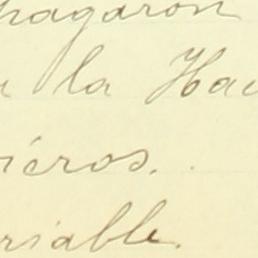 pagaron
la Hau
ieros.
riable.